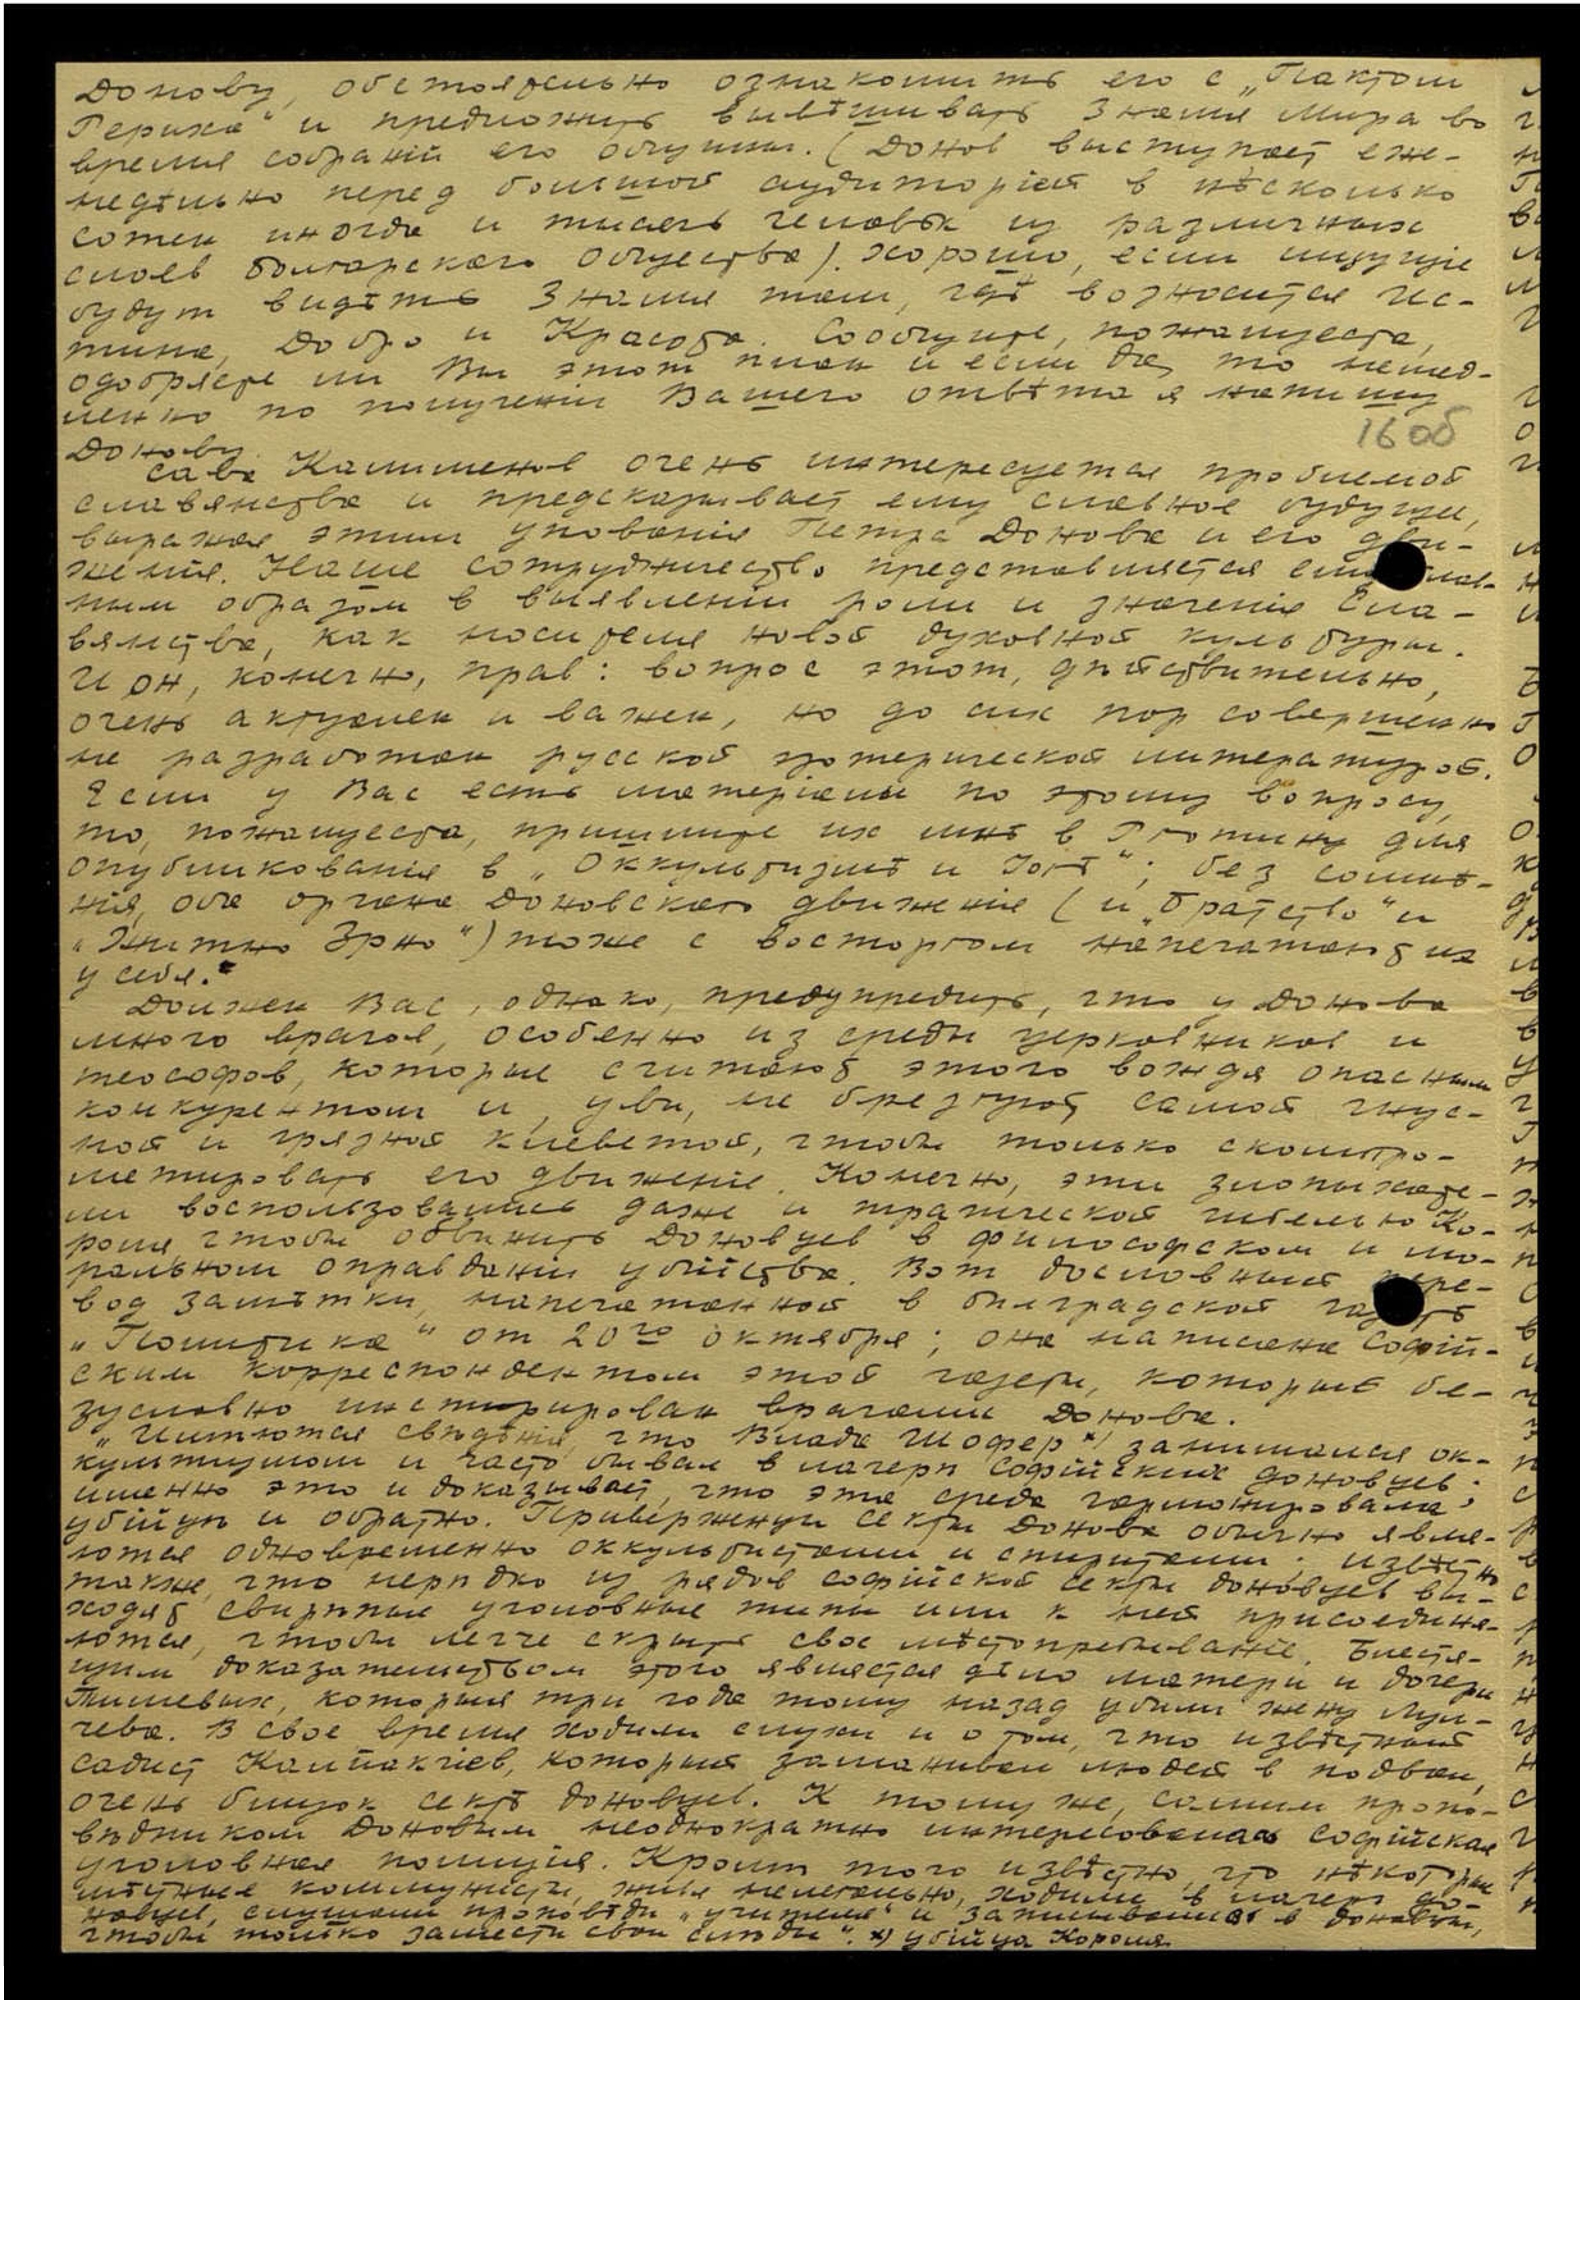 Донову, обстоятельно ознакомить его с „Пактом
Рериха“ и предложить вывѣшивать Знамя Мира во
время собраній его общины. (Донов выступает еже-
недѣльно перед большой аудиторіей в нѣсколько
сотен иногда и тысяч человѣк из различных
слоев болгарскаго общества). Хорошо, если ищущіе
будут видѣть Знамя там, гдѣ возносится Ис-
тина, Добро и Красота. Сообщите, пожалуйста,
одобряете ли Вы этот план и если да, то немед-
ленно по полученіи Вашего отвѣта я напишу
16 об
Донову.
Сава Калименов очень интересуется проблемой
славянства и предсказывает ему славное будущее,
выражая этим упованія Петра Донова и его дви-
женія. Наше сотрудничество представляется ему глав-
ным образом в выявленіи роли и значенія Сла-
вянства, как носителя новой духовной культуры.
И он, конечно, прав: вопрос этот, дѣйствительно,
очень актуален и важен, но до сих пор совершенно
не разработан русской эзотерической литературой.
Если у Вас есть матеріалы по этому вопросу,
то, пожалуйста, пришлите их мнѣ в для
опубликованія в „Оккультизмѣ и Іогѣ“; без сомнѣ-
нія, оба органа Доновскаго движенія (и „Братство“ и
„Житно Зрно“) тоже с восторгом напечатают их
у себя.
Должен Вас, однако, предупредить, что у Донова
много врагов, особенно из среды церковников и
теософов, которые считают этого вождя опасным
конкурентом и, увы, не брезгуют самой гнус-
ной и грязной клеветой, чтобы только скомпро-
метировать его движеніе. Конечно, эти злопыхате-
ли воспользовались даже и трагической гибелью Ко-
роля, чтобы обвинить Доновцев в философском и мо-
ральном оправданіи убійства. Вот дословный пере-
вод замѣтки, напечатанной в бѣлградской газетѣ
„Политика“ от 20го октября; она написана Софій-
ским корреспондентом этой газеты, который бе-
зусловно инспирирован врагами Донова.
„Имѣются свѣдѣнія, что Владо Шофер x) занимался ок-
культизмом и часто бывал в лагери софійских доновцев.
именно это и доказывает, что эта среда гармонировала
убійцѣ и обратно. Приверженцы секты Донова обычно явля-
ются одновременно оккультистами и спиритами. Извѣстно
также, что нерѣдко из рядов софійской секты доновцев вы-
ходят свирѣпые уголовные типы или к ней присоединя-
ются, чтобы легче скрыть свое мѣстопребываніе. Блестя-
щим доказательством этого является дѣло матери и дочери
которыя три года тому назад убили жену
В свое время ходили слухи и о том, что извѣстный
садист который заманивал людей в подвал,
очень близок сектѣ доновцев. К тому же, самим пропо-
вѣдником Доновым неоднократно интересовалась софійская
уголовная полиція. Кромѣ того извѣстно, что нѣкоторые
мѣстные коммунисты, живя нелегально, ходили в лагерь до-
новцев, слушали проповѣди „учителя“ и записывались в доновцы,
чтобы только замести свои слѣды“. x) убійца Короля.